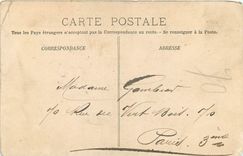 CARTE POSTALE
Tous les Pays étrangers n'acceptent pas la Correspondance au recto. - Se renseigner à la Poste.
CORRESPONDANCE
ADRESSE
Madame Gambier
70 Rue du Vert Bois. 70
Paris. 3ème